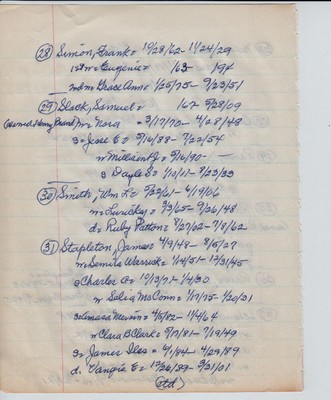 (28) Simion, Frank = 10/28/62- 11/24/29
1st m = Eugenie = 63- 194
2nd m = Grace Ann = 1/25/75- 9/23/51
(29) Slack, Samuel = 162- 5/28/09
m = Nora = 3/17/70- 4/28/48
s = Jesse E = 9/16/88- 7/22/54
m William G = 5/16/90-
s Dayle S = 1/10/11- 7/23/33
(30) Smith, Wm L = 9/22/61- 4/19/06
m = = 3/3/65- 9/26/48
d = Ruby Patton = 8/27/02- 7/8/62
(31) Stapleton, James = 4/9/48- 8/5/27
m = Semira Warrick = 1/14/51- 12/31/45
s Charles A = 10/13/71- 1/4/30
m Selia McConn = 1/17/75- 1/20/31
s = Mervin = 4/5/82- 11/4/64
m Clara B Clark = 9/17/81- 7/19/49
s = James Iles = 6/1/84- 4/29/89
d. Vangie E = 12/26/89- 3/21/01
(ctd)